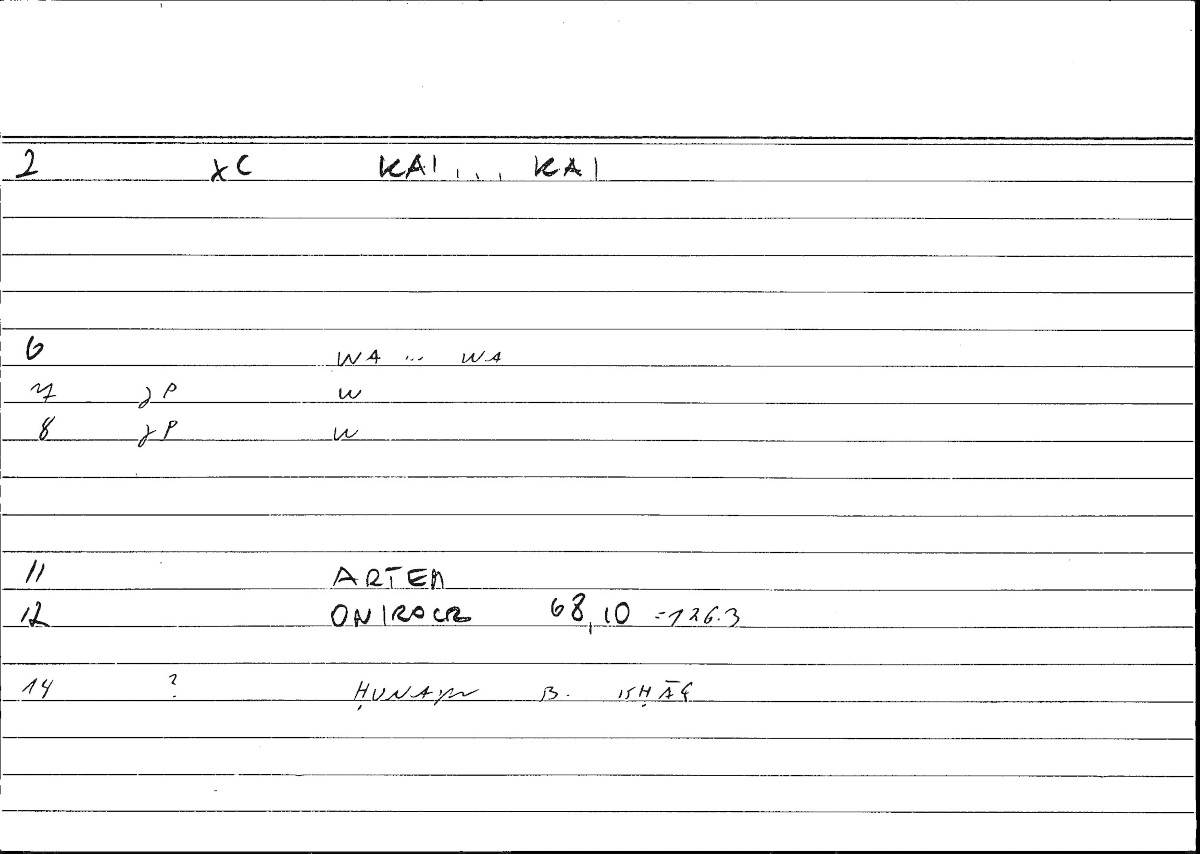 2 xC KAI ... KAI
6 WA ... WA
7 γP W
8 γP W
11 ARTEM
12 ONIROCR 68,10 =126.3
14 ? ḤUNAYN B. ISḤĀQ